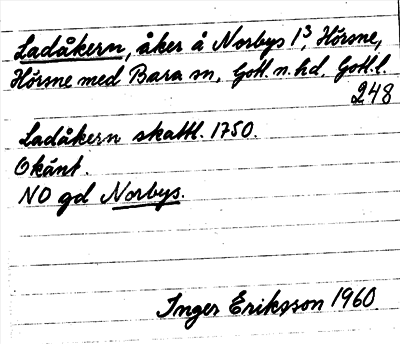 Ladåkern, åker å Norbys 1³, Hörsne,
Hörsne med Bara sn, Gotl. n. hd, Gotl. l.
248
Ladåkern skattl. 1750.
Okänt.
NO gd Norbys.
Inger Eriksson 1960